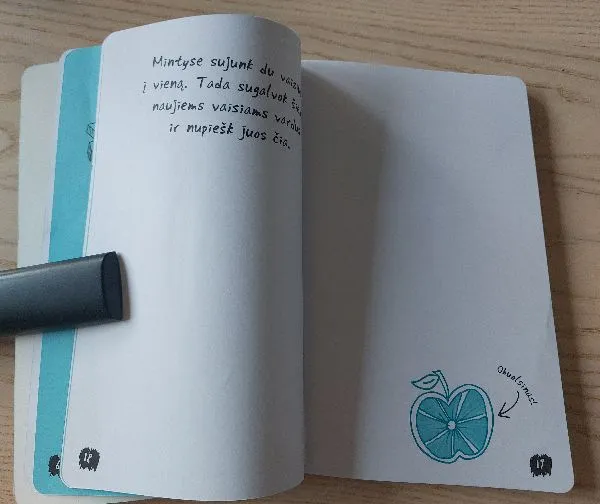 Mintyse sujunk du
į vieną. Tada sugalvok
naujiems vaisiams
ir nupiešk juos čia.
Obuolsinas!
16
17